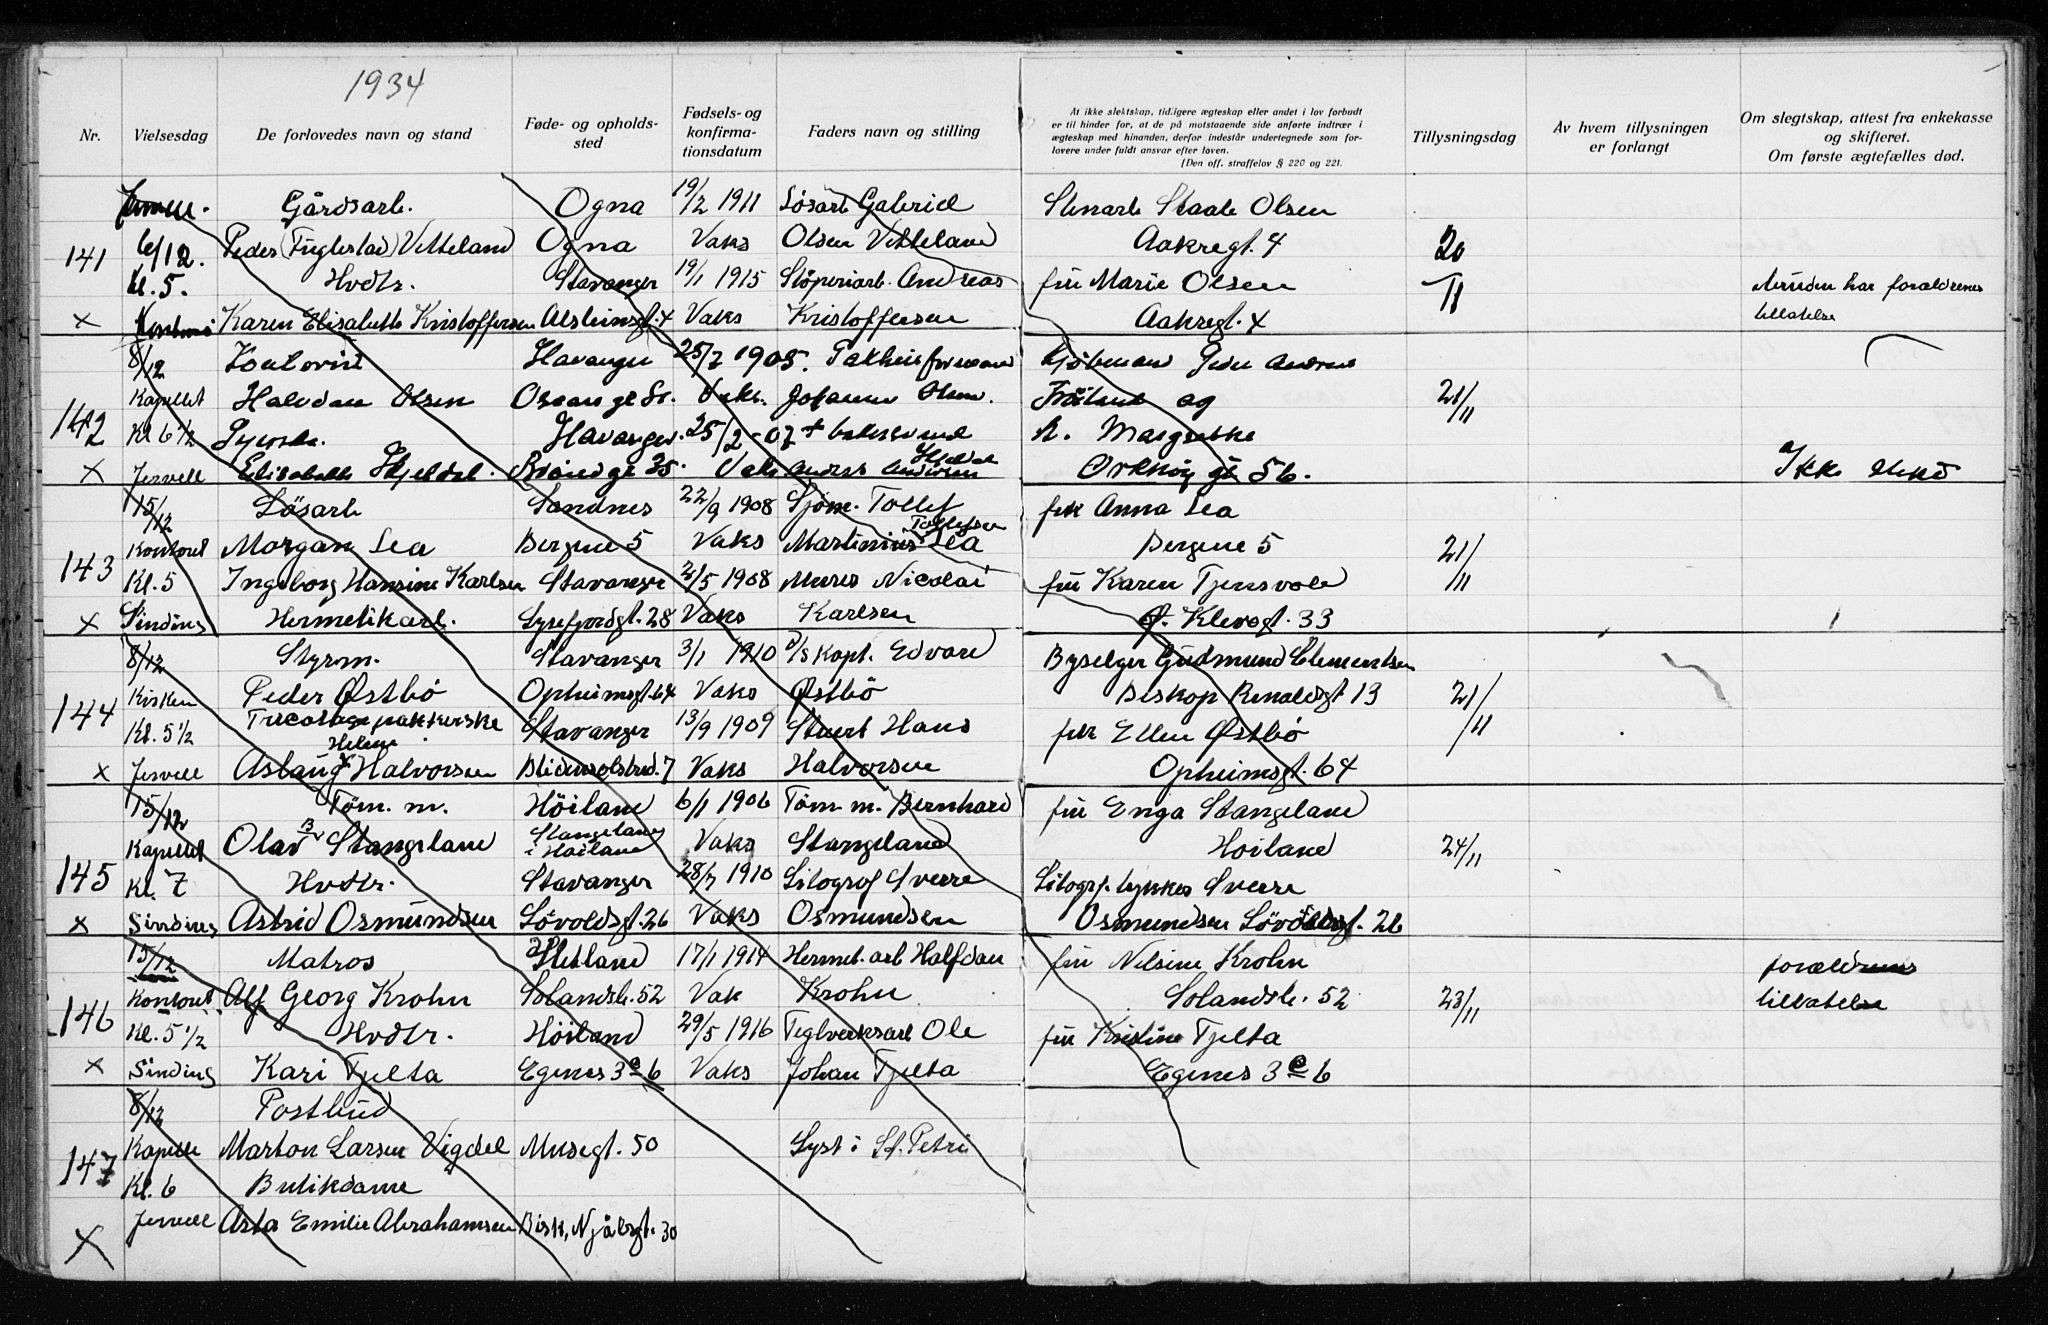 1934
Nr. Vielsesdag De forlovedes navn og stand Føde- og opholds-sted Fødsels- og konfirma-tionsdatum Faders navn og stilling At ikke slektskap, tidligere ægteskap eller andet i lov forbudt er til hinder for, at de på motstaaende side anførte indtrær i ægteskap med hinanden, derfor indestår undertegnede som for-lovere under fuldt ansvar efter loven. [Den off. straffelov § 220 og 221. Tillysningsdag Av hvem tillysningen er forlangt Om slegtskap, attest fra enkekasse og skifteret. Om første ægtefælles død.
Gårdsarb. Ogna 19/2 1911 Løsarb Gabriel Stenarb Staale Olsen
141 6/12. Peder (Fuglestad) Vetteland Ogna Vaks Olsen Vetteland Aakregt. 4 20
Kl. 5. Hvdtr. Stavanger 19/1 1915 Støperiarb. Andreas fru Marie Olsen 11 bruden har forældrenes
x Karen Elisabeth Kristoffersen Alsteinsgt. 4 Vaks Kristoffersen Aakregt. 4 tillatelse
8/12 Kontorist Stavanger 25/7 1905. Pakhusformand Kjøbmand Peder
Kapellet Halvdan Olsen Vaks. Johannes Olsen. og 21/11
142 Kl 6 1/2 Syerske. Stavanger. 25/2 - 07 + R. Margrethe
x Jervell Elisabeth Hjeldal. 35. Vaks Anders Andersen Hjeldal Orknøygt 56. Ikke
15/12 Løsarb Sandnes 22/9 1908 Sjøm. Tollef frk Anna Lea
143 Kontoret Morgan Lea Bergene 5 Vaks Martinius Tollefsen Lea Bergene 5 21/11
Kl. 5 Ingeborg Hansine Karlsen Stavanger 2/5 1908 Murer Nicolai fru Karen Tjensvold
x Sinding Hermetikarb. Lysefjordgt. 28 Vaks Karlsen Ø. Klevegt. 33
8/12 Styrm. Stavanger 3/1 1910 D/S kapt. Edvard Byselger Gudmund Clementsen
144 Kirken Peder Østbø Opheimsgt. 64 Vaks Østbø Biskop Reinaldsgt 13 21/11
Kl. 5 1/2 Tricotagepakkerske Stavanger 13/9 1909 Stuert Hans frk Ellen Østbø
x Jervell Aslaug Helene Halvorsen Blidensolstred. 7 Vaks Halvorsen Opheimsgt. 64
15/12 Tøm. m. Høiland 6/1 1906 Tøm m. Bernhard fru Enga Stangeland
Kapellet Olav B Stangeland Stangeland i Høiland Vaks Stangeland Høiland 24/11
145 Kl. 7 Hvdtr. Stavanger 28/7 1910 Litograf Sverre Litogr. trykker Sverre
x Sinding Astrid Osmundsen Løvoldsgt. 26 Vaks Osmundsen Osmundsen Løvoldsgt. 26
15/12 Matros Hetland 17/1 1914 Hermet. arb Halfdan fru Nilsine Krohn forældrenes
146 Kontoret Alf Georg Krohn Solandsb. 52 Vak Krohn Solandsb. 52 23/11 tillatelse
Kl. 5 1/2 Hvdtr. Høiland 29/5 1916 Teglverksarb Ole fru Kristine Tjelta
x Sinding Kari Tjelta Egenes 3e 6 Vaks Johan Tjelta Egenes 3e 6
8/12 Postbud
147 Kapelle Marton Larsen Vigdel Musegt. 50 Lyst i St. Petri
Kl. 6 Butikdame
x Jervell Asta Emilie Abrahamsen Bisk. Njålsgt. 30